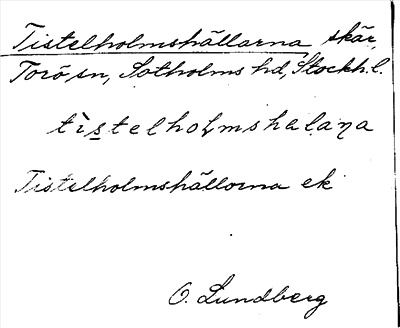 Tistelholmshällarna, skär,
Torö sn, Sotholms hd, Stockh. l.
tìstelhoɫmshalaɳa
Tistelholmshällorna ek
O. Lundberg